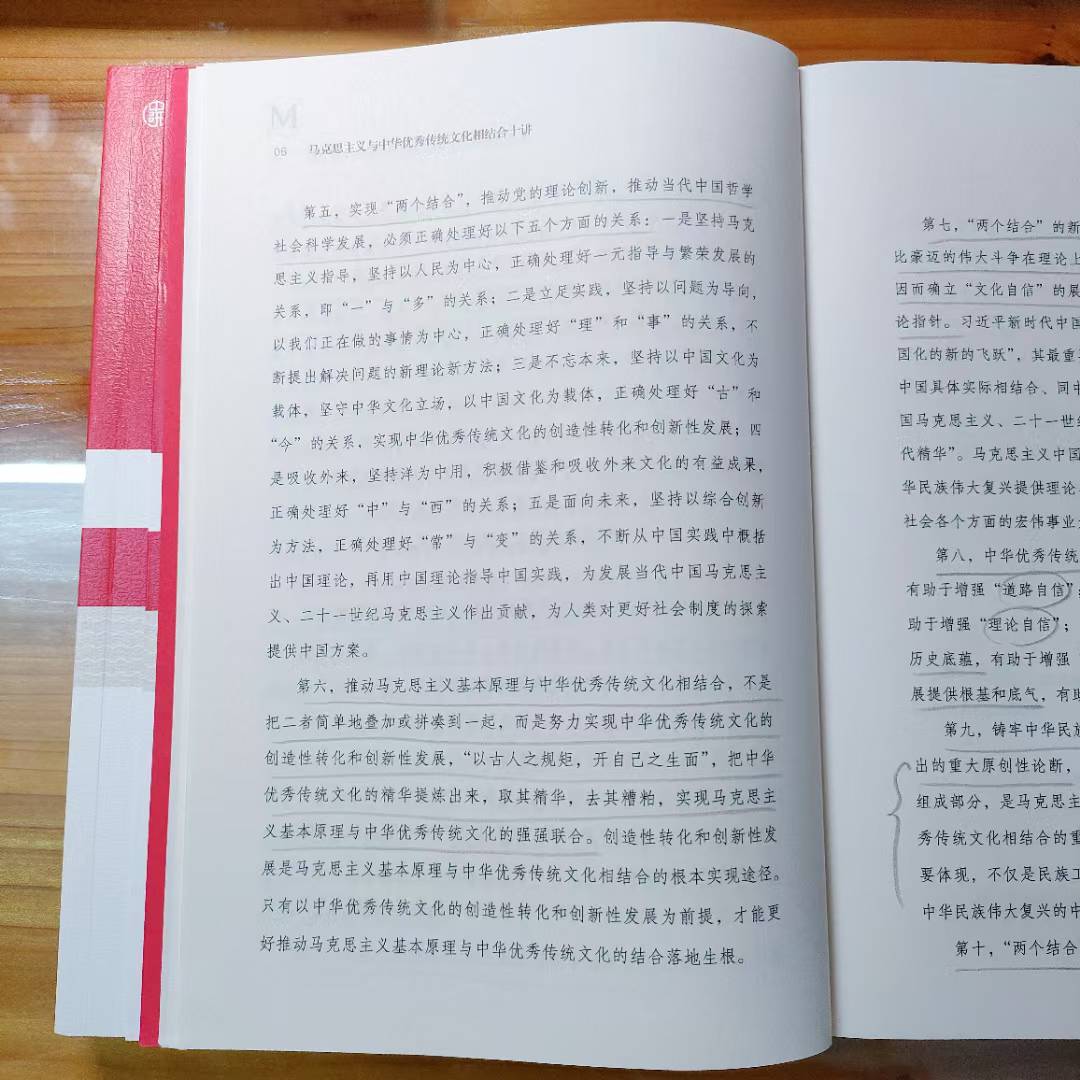 M
06 马克思主义与中华优秀传统文化相结合十讲
第五，实现“两个结合”，推动党的理论创新，推动当代中国哲学
社会科学发展，必须正确处理好以下五个方面的关系：一是坚持马克
思主义指导，坚持以人民为中心，正确处理好一元指导与繁荣发展的
关系，即“一”与“多”的关系；二是立足实践，坚持以问题为导向，
以我们正在做的事情为中心，正确处理好“理”和“事”的关系，不
断提出解决问题的新理论新方法；三是不忘本来，坚持以中国文化为
载体，坚守中华文化立场，以中国文化为载体，正确处理好“古”和
“今”的关系，实现中华优秀传统文化的创造性转化和创新性发展；四
是吸收外来，坚持洋为中用，积极借鉴和吸收外来文化的有益成果，
正确处理好“中”与“西”的关系；五是面向未来，坚持以综合创新
为方法，正确处理好“常”与“变”的关系，不断从中国实践中概括
出中国理论，再用中国理论指导中国实践，为发展当代中国马克思主
义、二十一世纪马克思主义作出贡献，为人类对更好社会制度的探索
提供中国方案。
第六，推动马克思主义基本原理与中华优秀传统文化相结合，不是
把二者简单地叠加或拼凑到一起，而是努力实现中华优秀传统文化的
创造性转化和创新性发展，“以古人之规矩，开自己之生面”，把中华
优秀传统文化的精华提炼出来，取其精华，去其糟粕，实现马克思主
义基本原理与中华优秀传统文化的强强联合。创造性转化和创新性发
展是马克思主义基本原理与中华优秀传统文化相结合的根本实现途径。
只有以中华优秀传统文化的创造性转化和创新性发展为前提，才能更
好推动马克思主义基本原理与中华优秀传统文化的结合落地生根。
第七，“两个结合”的新
比豪迈的伟大斗争在理论上
因而确立“文化自信”的展
论指针。习近平新时代中国
国化的新的飞跃”，其最重
中国具体实际相结合、同中
国马克思主义、二十一世纪
代精华”。马克思主义中国
华民族伟大复兴提供理论
社会各个方面的宏伟事业
第八，中华优秀传统
有助于增强“道路自信”；
助于增强“理论自信”；
历史底蕴，有助于增强
展提供根基和底气，有助
第九，铸牢中华民族
出的重大原创性论断，
组成部分，是马克思主
秀传统文化相结合的重
要体现，不仅是民族工
中华民族伟大复兴的中
第十，“两个结合